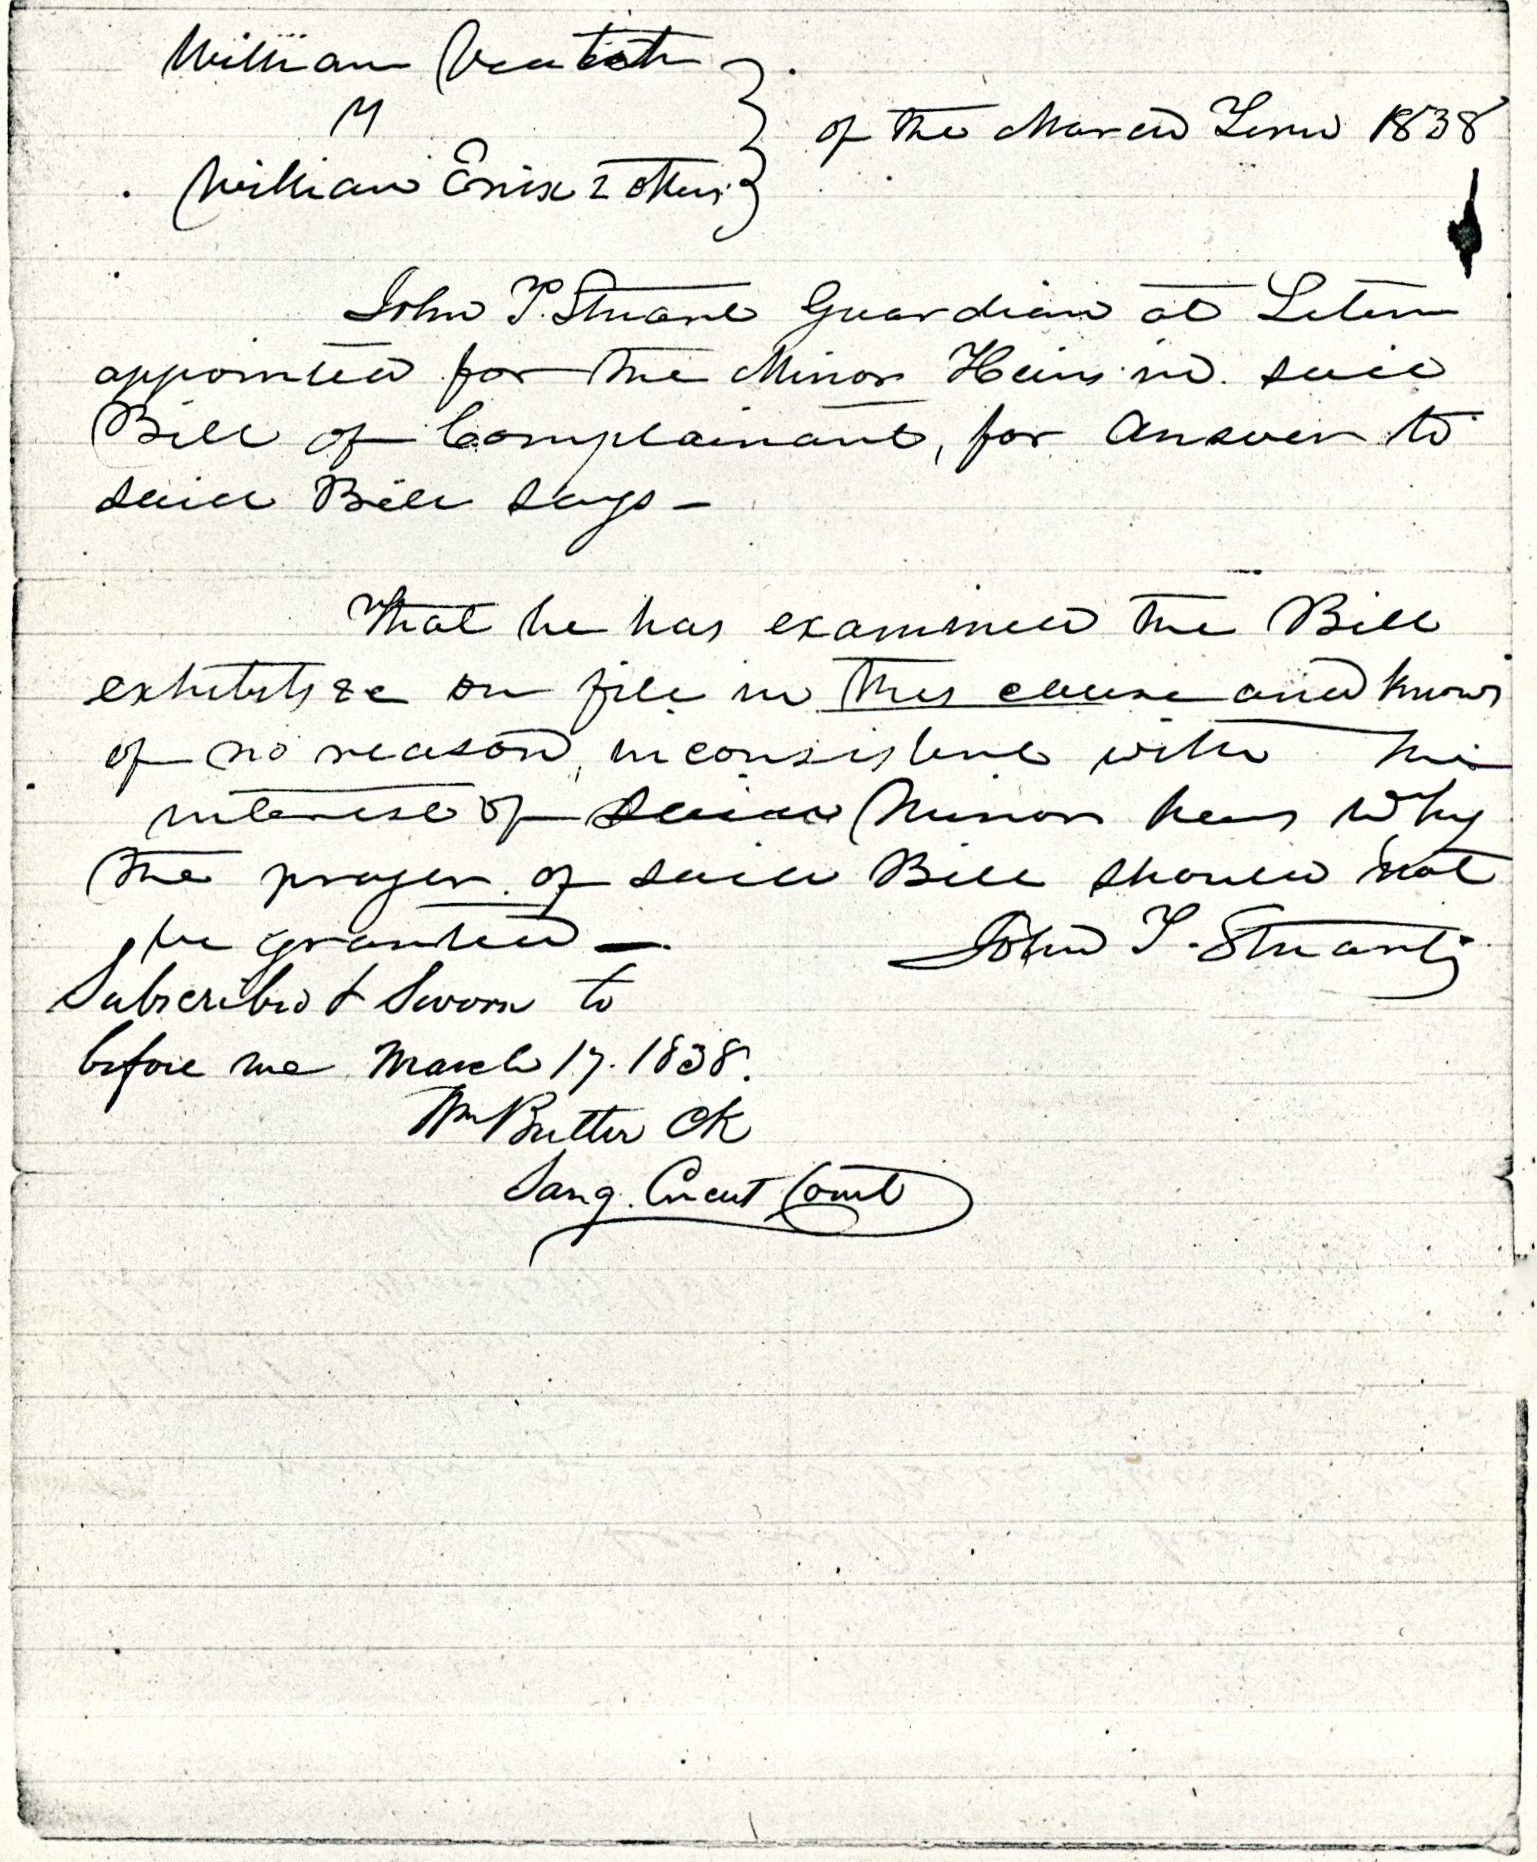 William Veatch
vs
William Enix & others
of the March Term 1838
John T. Stuart Guardian at Litem
appointed for the Minor Heirs in said
Bill of Complainant, for answer to
said Bill says —
That he has examined the Bill
exhibits &c on file in this cause and knows
of no reason, inconsistent with the
interest of said Minor heirs why
the prayer of said Bill should not
be granted —
John T. Stuart
Subscribed & Sworn to
before me March 17. 1838.
Wm Butler Ck
Sang. Circut Court